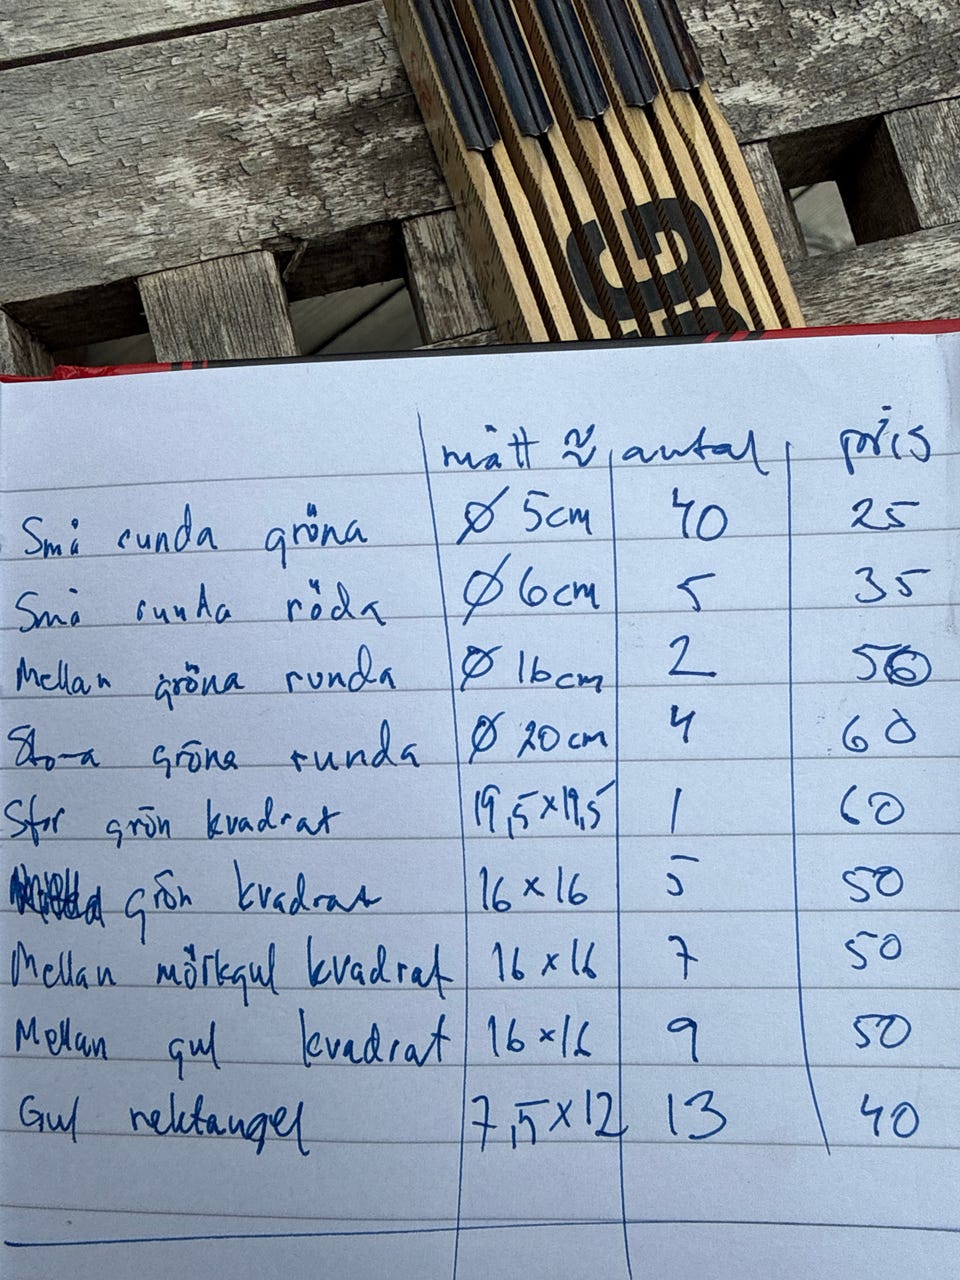 mått ≈ antal pris
Små runda gröna Ø 5cm 40 25
Små runda röda Ø 6cm 5 35
Mellan gröna runda Ø 16cm 2 50
Stora gröna runda Ø 20cm 4 60
Stor grön kvadrat 19,5×19,5 1 60
grön kvadrat 16×16 5 50
Mellan mörkgul kvadrat 16×16 7 50
Mellan gul kvadrat 16×16 9 50
Gul rektangel 7,5×12 13 40